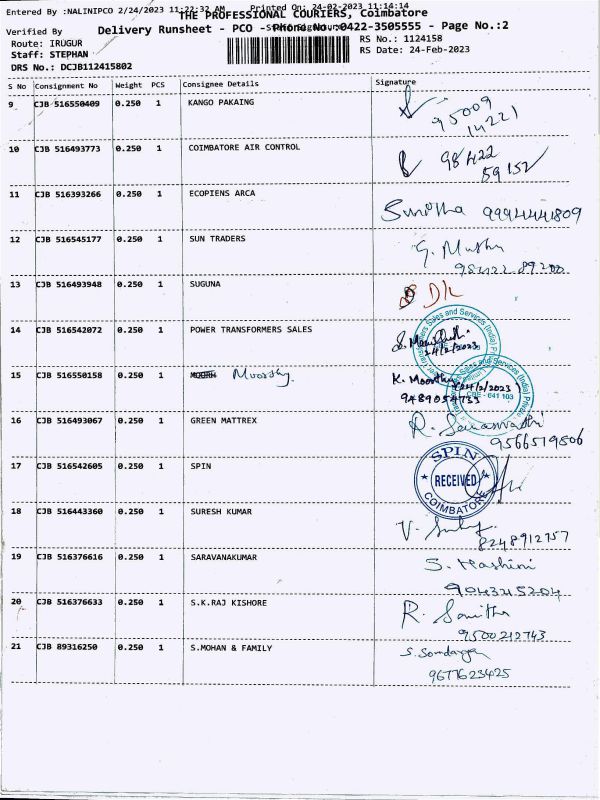 Entered By :NALINIPCO 2/24/2023 11:22:32 AM Printed On: 24-02-2023 11:14:14
THE PROFESSIONAL COURIERS, Coimbatore
Verified By Delivery Runsheet - PCO - Phone No.:0422-3505555 - Page No.:2
Route: IRUGUR RS No.: 1124158
Staff: STEPHAN RS Date: 24-Feb-2023
DRS No.: DCJB112415802
S No Consignment No Weight PCS Consignee Details Signature
9 CJB 516550409 0.250 1 KANGO PAKAING 95009
14221
10 CJB 516493773 0.250 1 COIMBATORE AIR CONTROL 98422
59152
11 CJB 516393266 0.250 1 ECOPIENS ARCA Sunitha 9994441809
12 CJB 516545177 0.250 1 SUN TRADERS G. Muthu
98422 89200
13 CJB 516493948 0.250 1 SUGUNA D/L
14 CJB 516542072 0.250 1 POWER TRANSFORMERS SALES
24/2/2023
Sales and Services (India) Private
15 CJB 516550158 0.250 1 Moorthy K. Moorthy 24/2/2023
9489054733
CBE - 641 103
16 CJB 516493067 0.250 1 GREEN MATTREX R. Saraswathi
9566519806
17 CJB 516542605 0.250 1 SPIN SPIN
RECEIVED
COIMBATORE
18 CJB 516443360 0.250 1 SURESH KUMAR V.
8248912757
19 CJB 516376616 0.250 1 SARAVANAKUMAR S. Harshini
9043215204
20 CJB 516376633 0.250 1 S.K.RAJ KISHORE R. Sanitha
9500212743
21 CJB 89316250 0.250 1 S.MOHAN & FAMILY S.
9677623425